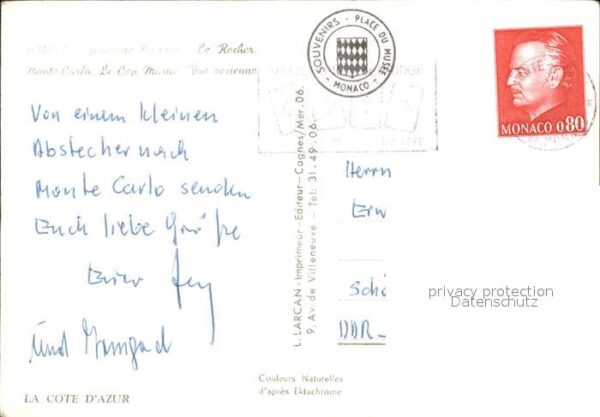 Le Rocher
Monte-Carlo. Le Cap Martin. Vue aérienne
SOUVENIRS - PLACE DU MUSÉE
- MONACO -
MONACO 0,80
Von einem kleinen
Abstecher nach
Monte Carlo senden
Euch liebe Grüße
Euer
und
L. LARCAN - Imprimeur - Editeur - Cagnes/Mer. 06.
9, Av. de Villeneuve - Tel: 31.49.06.
Herrn
Erw
Schi
DDR-
privacy protection
Datenschutz
Couleurs Naturelles
d'après Ektachrome
LA COTE D'AZUR